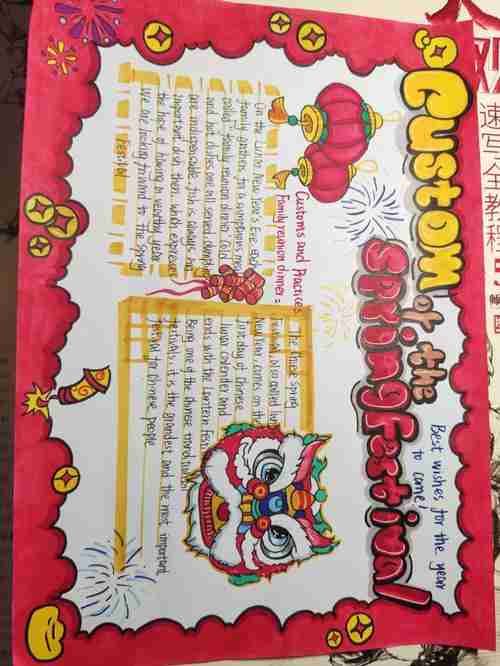 Custom of the
Spring Festival
Best wishes for the year
to come!
Customs and Practices:
Family reunion dinner:
On the Lunar New Year's Eve, each
family gathers for a sumptuous meal
called family reunion dinner. Cold
and hot dishes are all served. dumplings
are indispensable. fish is always an
important dish, then, which expresses
the hope of having a wealthy year.
We are looking forward to the Spring
Festival
The Chinese Spring
Festival, also called lunar
New Year, comes on the
first day of Chinese
lunar calender and
ends with the Lantern Festival
Being one of the Chinese traditional
festivals, it is the grandest and the most important
festival for chinese people.
速写全教程